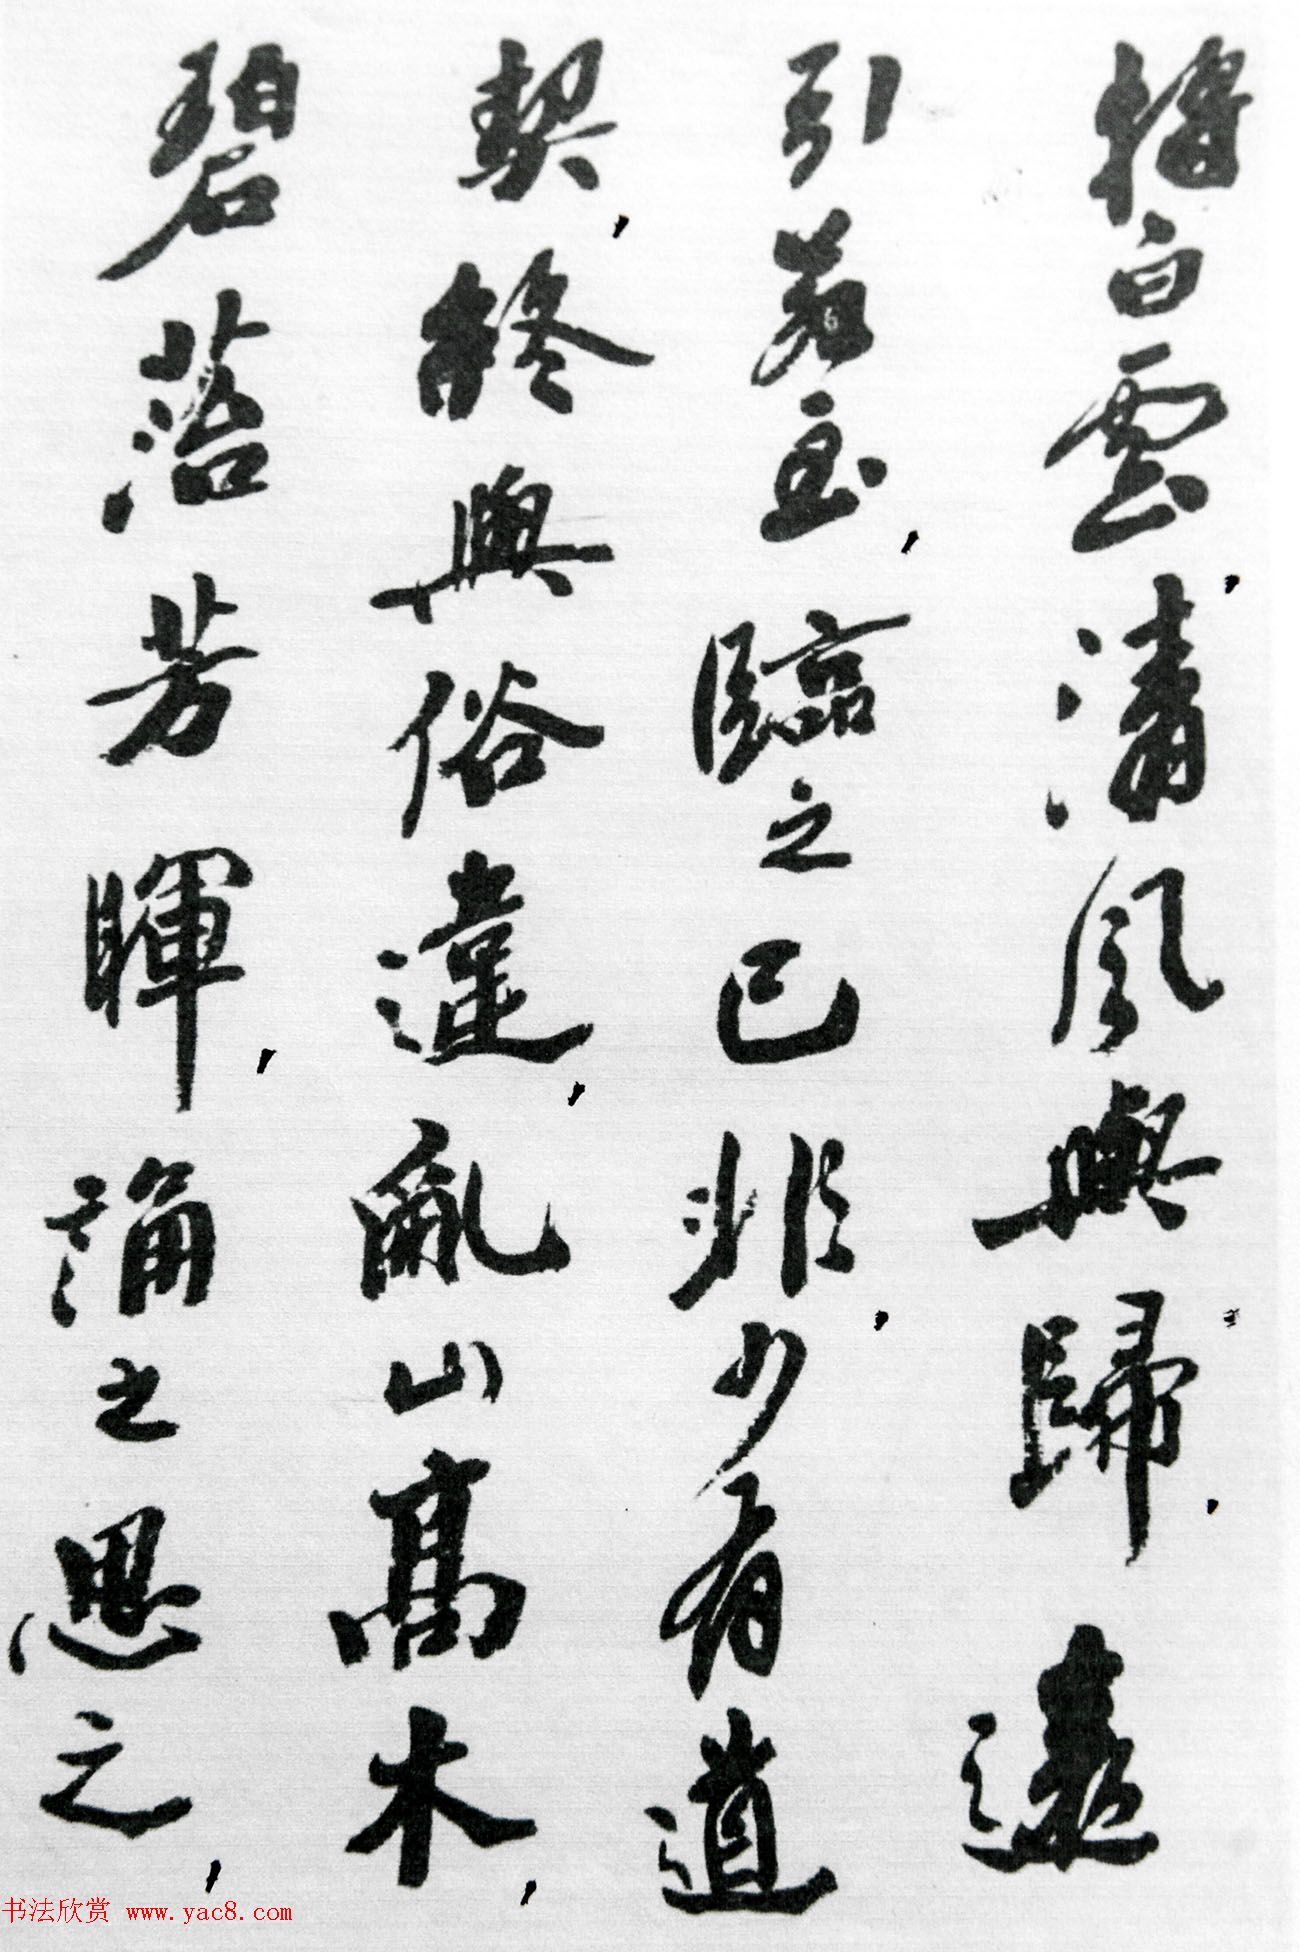 將白雲，清風與歸，遠
引若至，臨之已非，少有道
契，終與俗違，亂山高木，
碧落芳暉，誦之思之，
书法欣赏 www.yac8.com